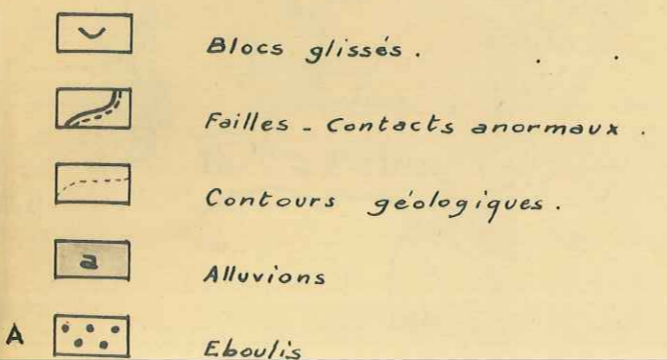 Blocs glissés.
Failles - Contacts anormaux.
Contours géologiques.
a Alluvions
A Eboulis